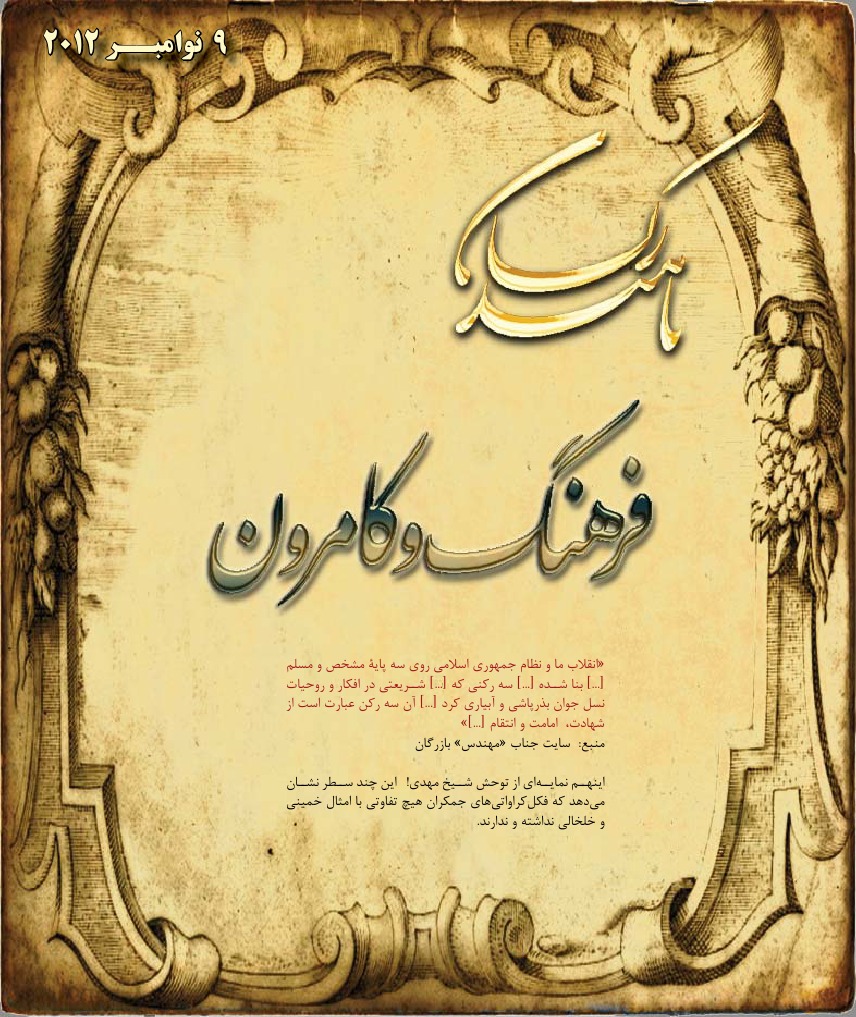 ۹ نوامبـــر ۲۰۱۲
فرهنگ و کامرون
«انقلاب ما و نظام جمهوری اسلامی روی سه پایهٔ مشخص و مسلم
[...] بنا شـده [...] سه رکنی که [...] شـریعتی در افکار و روحیات
نسل جوان بذرپاشی و آبیاری کرد [...] آن سه رکن عبارت است از
شهادت، امامت و انتقام [...]»
منبع: سایت جناب «مهندس» بازرگان
اینهـم نمایـه‌ای از توحش شـیخ مهدی! این چند سـطر نشـان
می‌دهد که فکل‌کراواتی‌های جمکران هیچ تفاوتی با امثال خمینی
و خلخالی نداشته و ندارند.